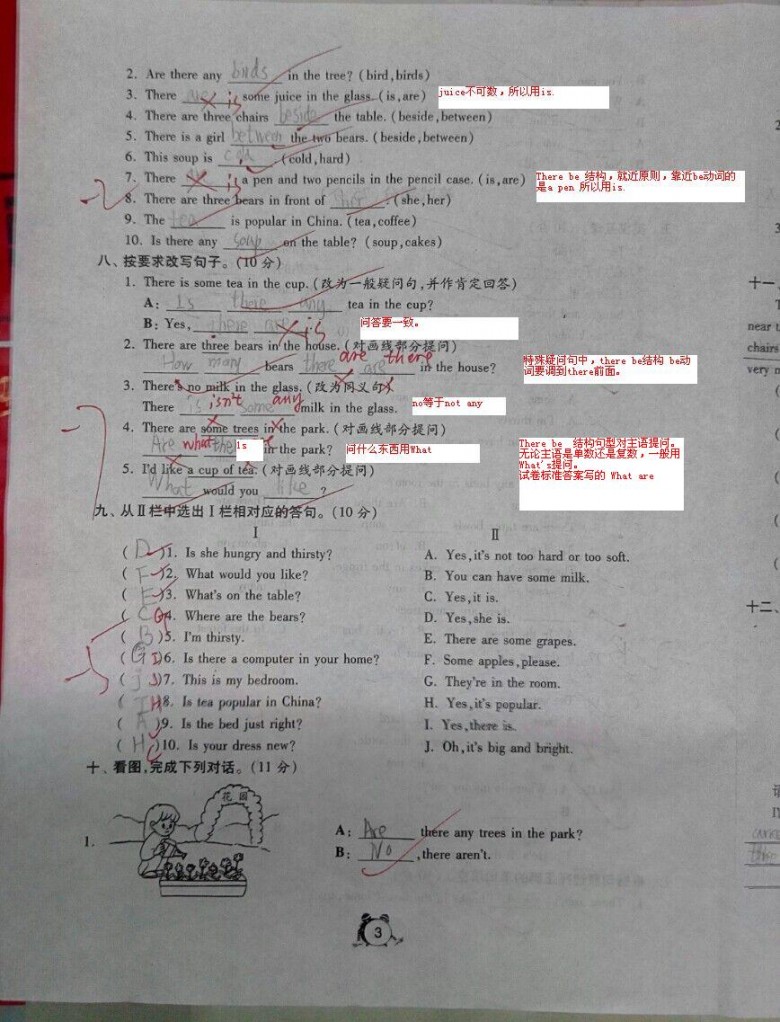 2. Are there any birds in the tree? (bird,birds)
3. There are is some juice in the glass. (is,are) juice不可数，所以用is.
4. There are three chairs beside the table. (beside,between)
5. There is a girl between the two bears. (beside,between)
6. This soup is cold. (cold,hard)
7. There is a pen and two pencils in the pencil case. (is,are) There be 结构，就近原则，靠近be动词的是a pen 所以用is.
-2 8. There are three bears in front of her. (she,her)
9. The tea is popular in China. (tea,coffee)
10. Is there any soup on the table? (soup,cakes)
八、按要求改写句子。(10分)
1. There is some tea in the cup. (改为一般疑问句,并作肯定回答)
A: Is there any tea in the cup?
B: Yes, there are is. 问答要一致。
2. There are three bears in the house. (对画线部分提问)
How many bears there are are there in the house? 特殊疑问句中，there be结构 be动词要调到there前面。
3. There's no milk in the glass. (改为同义句)
There is isn't some any milk in the glass. no等于not any
4. There are some trees in the park. (对画线部分提问)
Are what is the in the park? 问什么东西用What
There be 结构句型对主语提问。
无论主语是单数还是复数，一般用
What's提问。
试卷标准答案写的 What are
5. I'd like a cup of tea. (对画线部分提问)
What would you like ?
九、从Ⅱ栏中选出Ⅰ栏相对应的答句。(10分)
Ⅰ Ⅱ
( D )1. Is she hungry and thirsty? A. Yes,it's not too hard or too soft.
( F )2. What would you like? B. You can have some milk.
( E )3. What's on the table? C. Yes,it is.
( C G )4. Where are the bears? D. Yes,she is.
( B )5. I'm thirsty. E. There are some grapes.
( G I )6. Is there a computer in your home? F. Some apples,please.
( J )7. This is my bedroom. G. They're in the room.
( I H )8. Is tea popular in China? H. Yes,it's popular.
( A )9. Is the bed just right? I. Yes,there is.
( H C )10. Is your dress new? J. Oh,it's big and bright.
十、看图,完成下列对话。(11分)
花园
1.
A: Are there any trees in the park?
B: No ,there aren't.
3
十一、
near t
chairs
very n
十二、